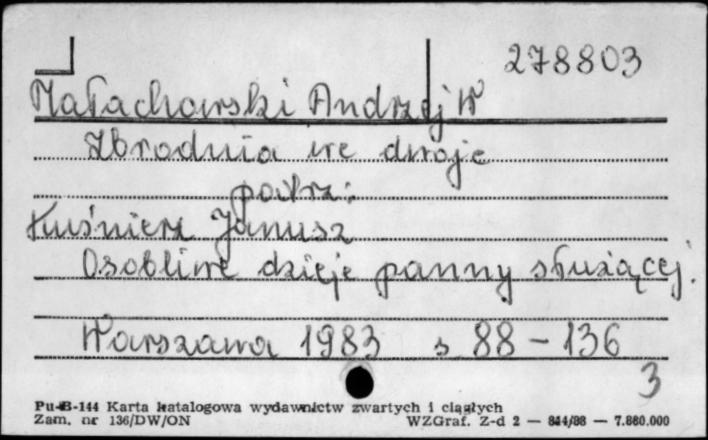 278803
Małachowski Andrzej W
Zbrodnia we dwoje
patrz:
Kuśnierz Janusz
Osobliwe dzieje panny służącej.
Warszawa 1983 s 88 - 136
3
Pu-B-144 Karta katalogowa wydawnictw zwartych i ciągłych
Zam. nr 136/DW/ON WZGraf. Z-d 2 — 844/88 — 7.880.000